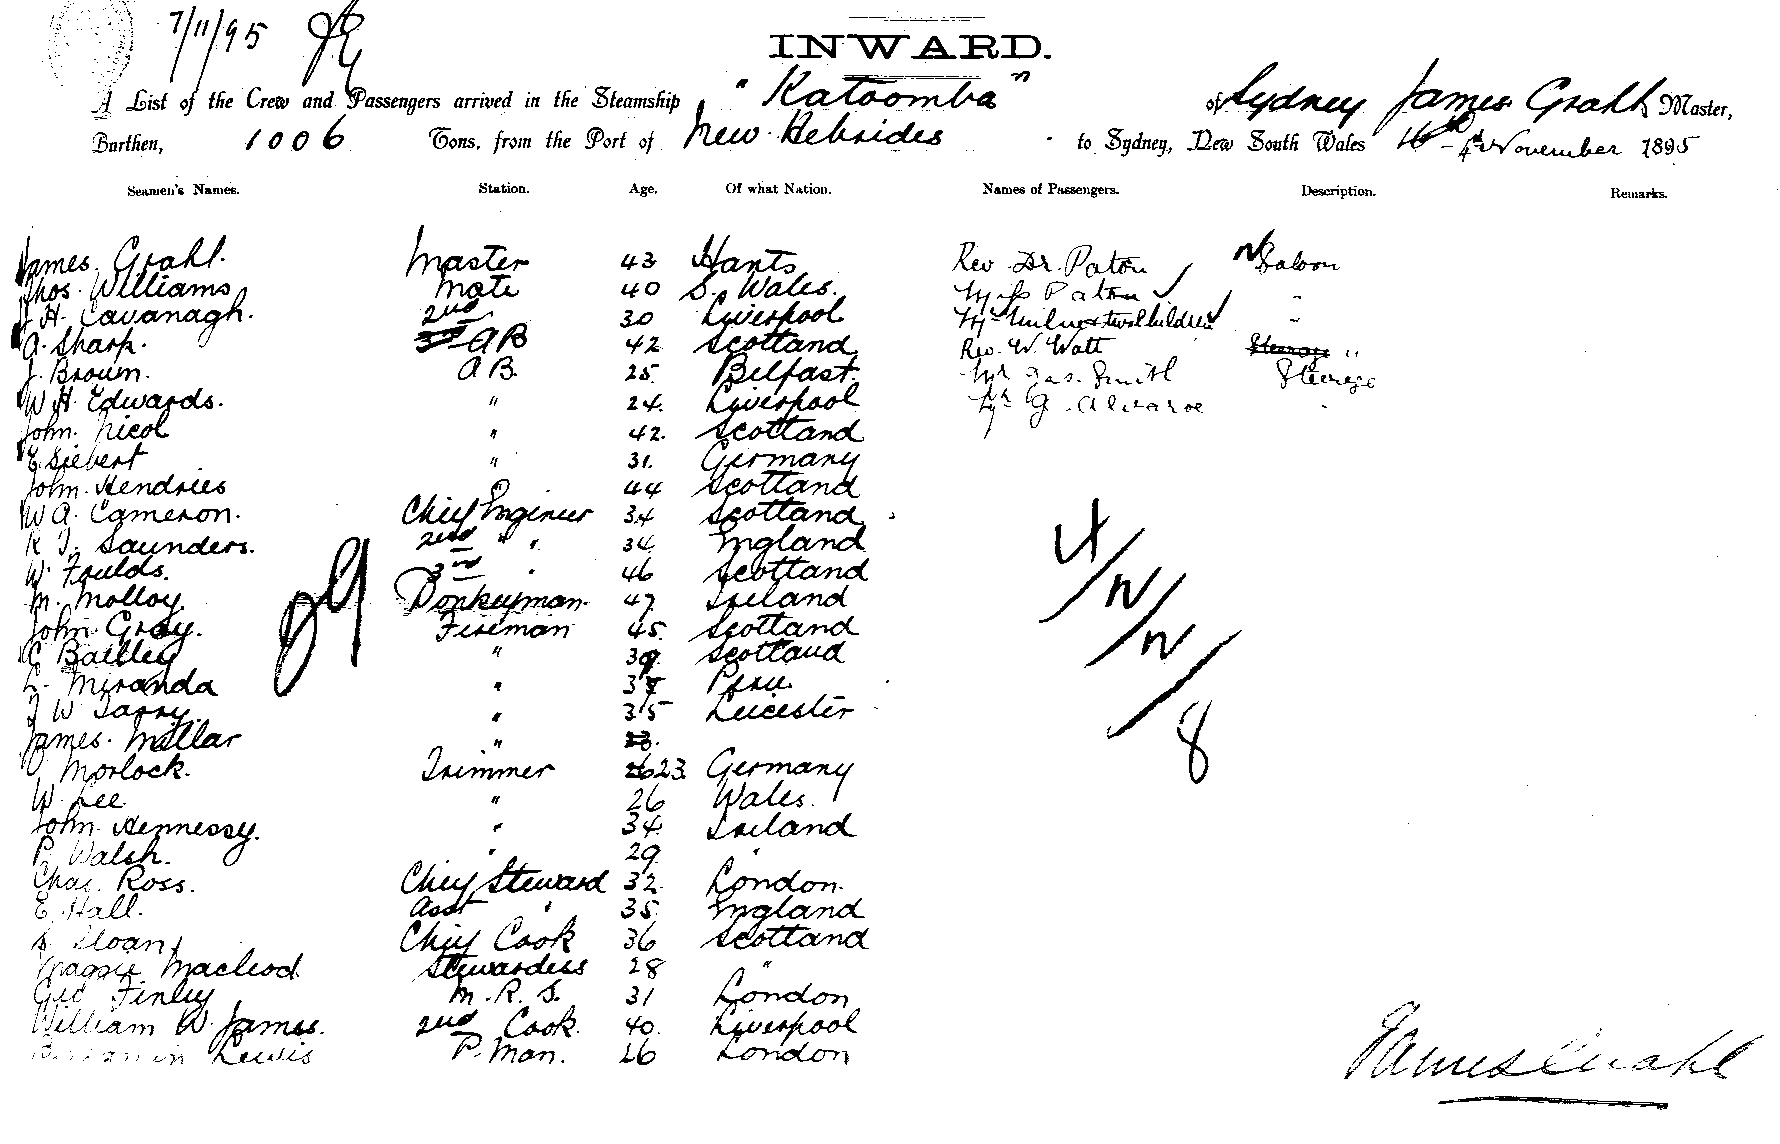 7/11/95
INWARD.
A List of the Crew and Passengers arrived in the Steamship "Katoomba" of Sydney James Grahl Master,
Burthen, 1006 Tons, from the Port of New Hebrides to Sydney, New South Wales 4th November 1895
Seamen's Names. Station. Age. Of what Nation. Names of Passengers. Description. Remarks.
James Grahl. Master 43 Hants Rev. Dr. Paton Saloon
Thos. Williams Mate 40 S. Wales. Miss Paton "
J H. Cavanagh. 2nd 30 Liverpool Mr Milne & two Children "
A. Sharp. AB 42 Scotland Rev. W. Watt Steerage "
J. Brown. AB. 25 Belfast. Mr Jas. Smith Steerage
W H. Edwards. " 24. Liverpool Mr G. Alvaroe "
John Nicol " 42. Scotland
E. Sievert " 31. Germany
John Hendries " 44 Scotland
W A. Cameron. Chief Engineer 34 Scotland
R J. Saunders. 2nd " " 34 England
W. Foulds. 3rd " 46 Scotland
M. Molloy. Donkeyman. 47 Ireland
John Gray. Fireman 45. Scotland
C Bailley " 39. Scotland
L. Miranda " 38 Peru.
J W Tarry. " 35 Leicester
James Millar " 23.
J Morlock. Trimmer 23. Germany
W. Lee " 26 Wales.
John Hennessy. " 34. Ireland
P. Walsh. " 29 "
Chas. Ross. Chief Steward 32. London.
E. Hall. Asst " 35 England
S. Sloan Chief Cook 36 Scotland
Maggie Macleod Stewardess 28 "
Geo Finley M. R. S. 31 London
William W. James. 2nd Cook. 40. Liverpool
Benjamin Lewis P. Man. 26 London
4/N/N/8
James Grahl